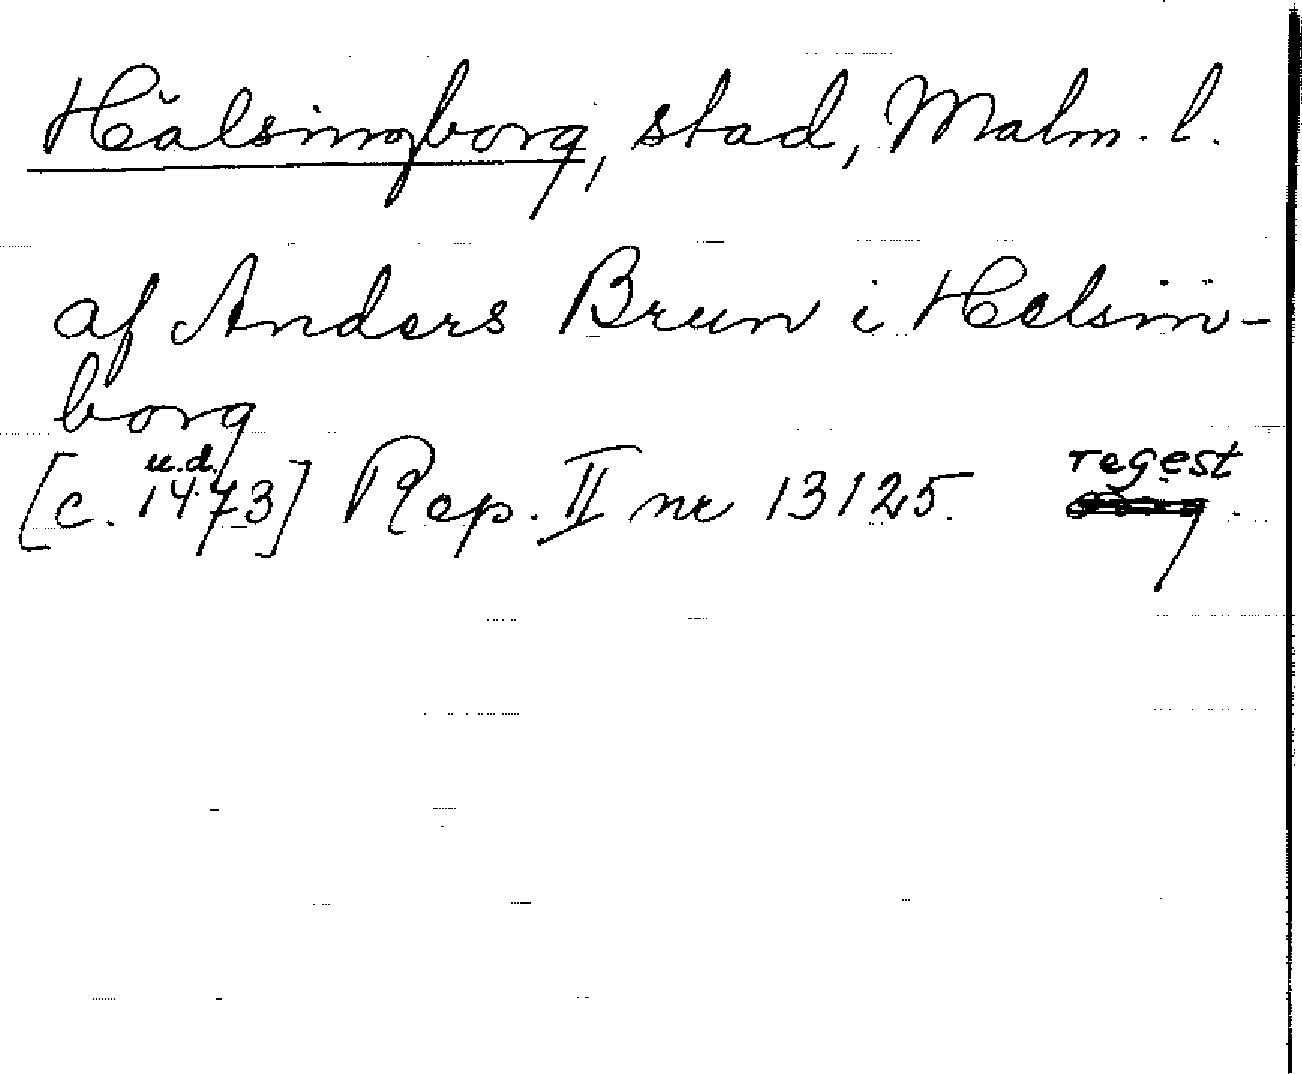 Hälsingborg, stad, Malm. l.
af Anders Brun i Helsin-
borg
u.d.
[c. 1473] Rep. II nr 13125. regest